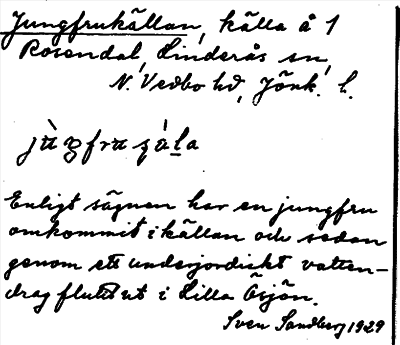 Jungfrukällan, källa å 1
Rosendal, Linderås sn,
N. Vedbo hd, Jönk. l.
Enligt sägnen har en jungfru
omkommit i källan och sedan
genom ett underjordiskt vatten-
drag flutit ut i Lilla Ösjön.
Sven Sandberg 1929